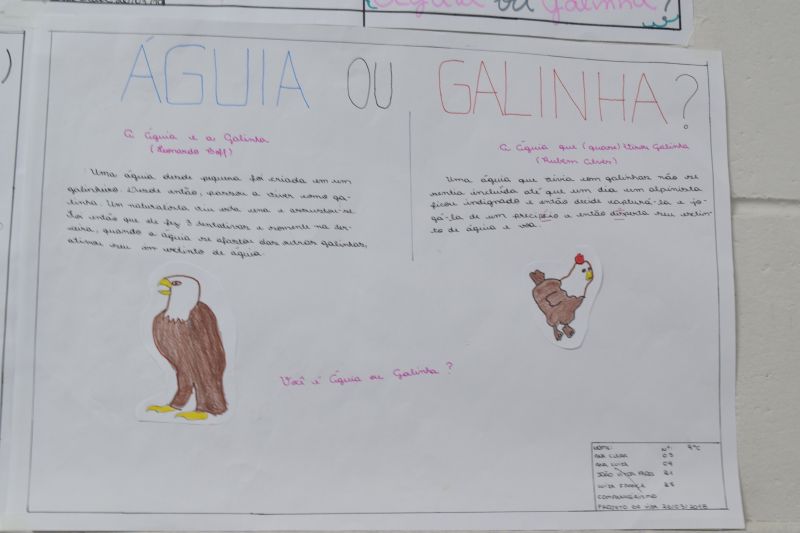 Águia ou Galinha?
ÁGUIA OU GALINHA?
A águia e a Galinha
(Leonardo Boff)
Uma águia desde pequena foi criada em um
galinheiro. Desde então, passou a viver como ga-
linha. Um naturalista viu esta cena e assustou-se
foi então que ele fez 3 tentativas e somente na ter-
ceira, quando a águia se afastou das outras galinhas,
ativou seu instinto de águia
A águia que (quase) virou Galinha
(Rubem Alves)
Uma águia que vivia com galinhas não se
sentia incluída até que um dia um alpinista
ficou indignado e então decide capturá-la e jo-
gá-la de um precipício e então desperta seu instin-
to de águia e voa.
Você é águia ou Galinha?
NOME: Nº: 9ºC
ANA CLARA 03
ANA LUIZA 04
JOÃO VITOR 21
LUIZA 25
COMPANHEIRISMO
PROJETO DE VIDA 22/03/2018